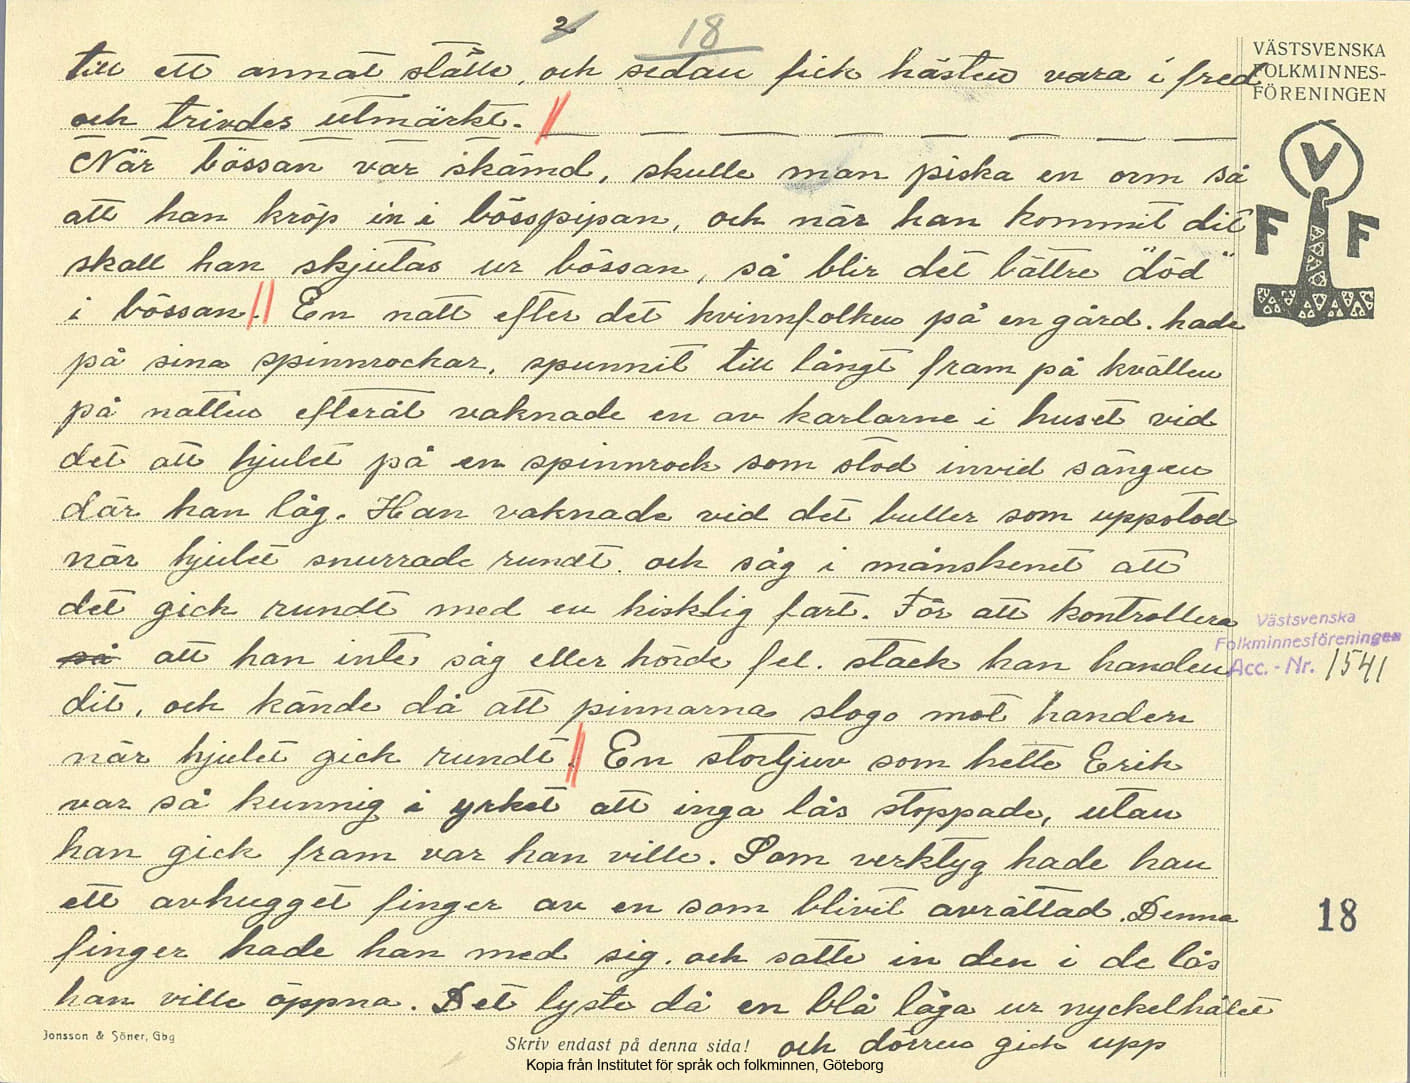 2
18
till ett annat ställe, och sedan fick hästen vara i fred
och trivdes utmärkt.
När bössan var skämd, skulle man piska en orm så
att han kröp in i bösspipan, och när han kommit dit
skall han skjutas ur bössan, så blir det bättre "död"
i bössan. En natt efter det kvinnfolken på en gård. hade
på sina spinnrockar, spunnit till långt fram på kvällen
på natten efteråt vaknade en av karlarne i huset vid
det att hjulet på en spinnrock som stod invid sängen
där han låg. Han vaknade vid det buller som uppstod
när hjulet snurrade rundt. och såg i månskenet att
det gick rundt med en hisklig fart. För att kontrollera
så att han inte såg eller hörde fel. stack han handen
dit, och kände då att pinnarna slogo mot handen
när hjulet gick rundt. En stortjuv som hette Erik
var så kunnig i yrket att inga lås stoppade, utan
han gick fram var han ville. Som verktyg hade han
ett avhugget finger av en som blivit avrättad. Denna
finger hade han med sig. och satte in den i de lås
han ville öppna. Det lyste då en blå låga ur nyckelhålet
och dörren gick upp
VÄSTSVENSKA
FOLKMINNES-
FÖRENINGEN
V
F F
Västsvenska
Folkminnesföreningen
Acc.-Nr. 1541
18
Jonsson & Söner, Gbg
Skriv endast på denna sida!
Kopia från Institutet för språk och folkminnen, Göteborg